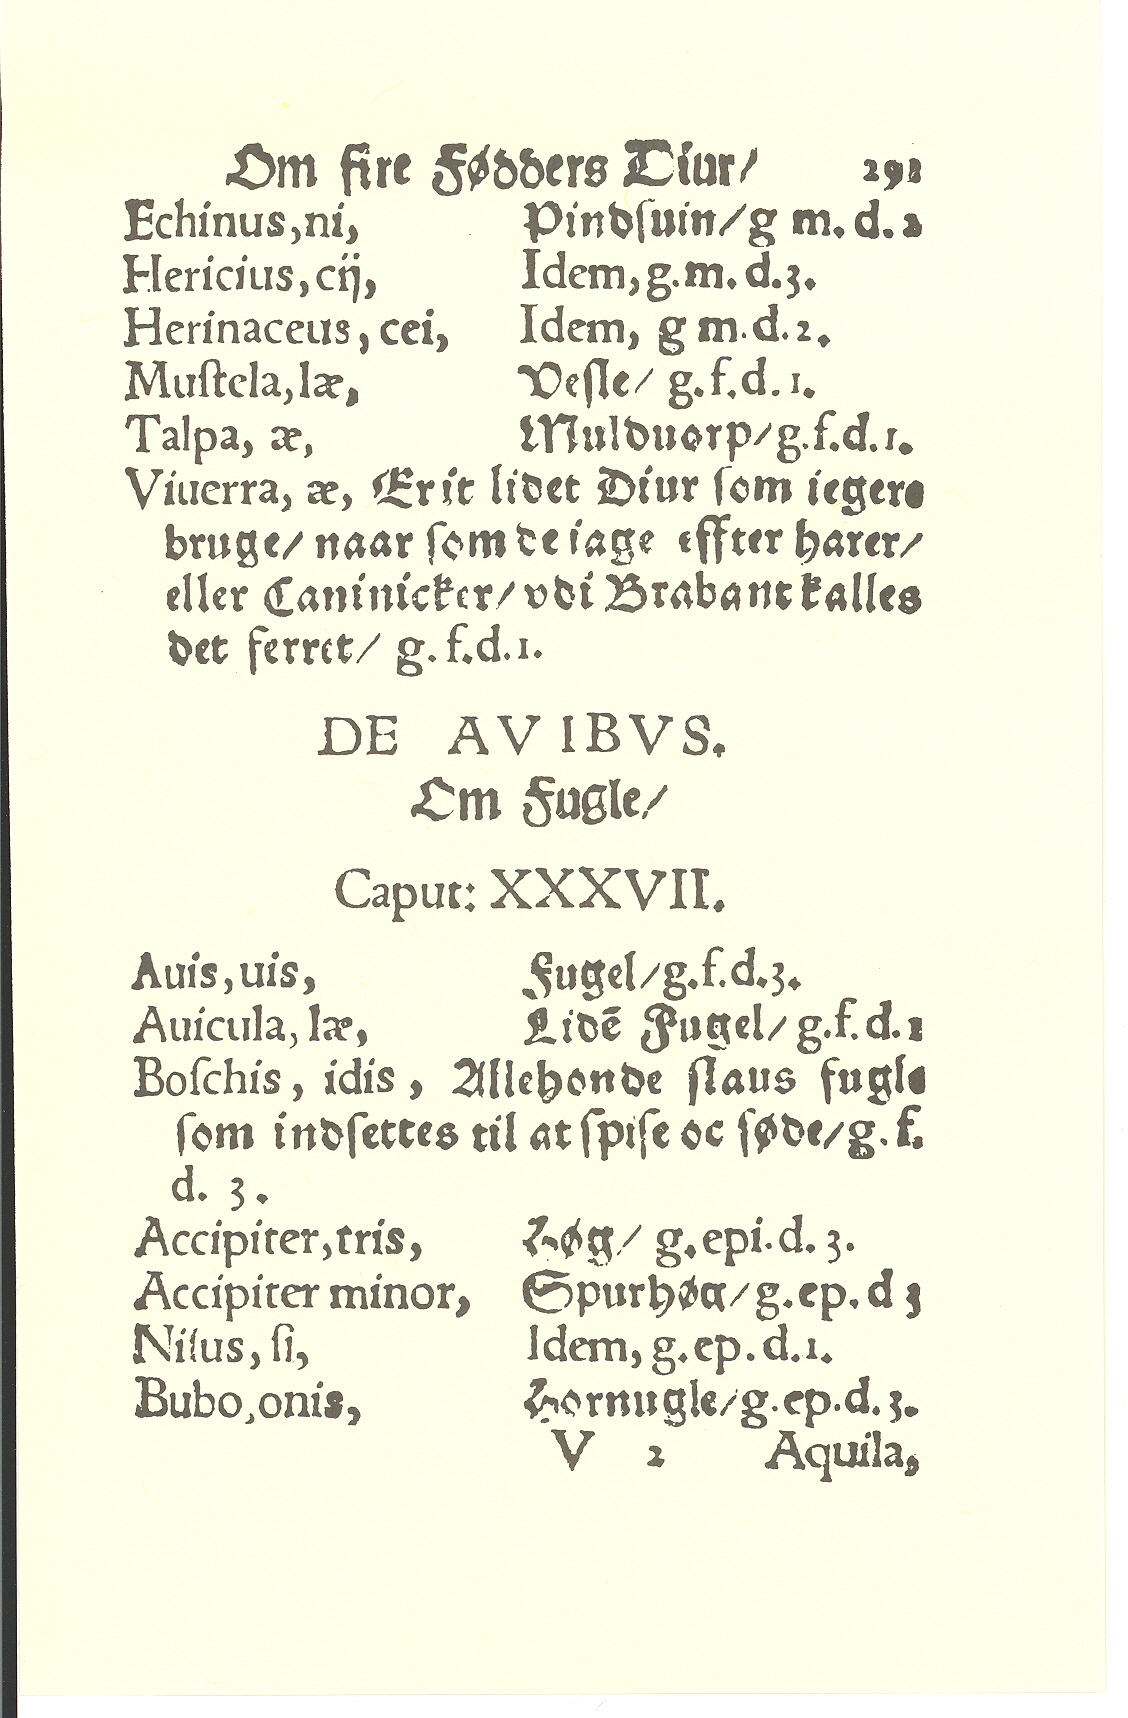 Om fire Fødders Diur/ 291
Echinus,ni, Pindſuin/g m. d. 2
Hericius, cij, Idem, g. m. d. 3.
Herinaceus, cei, Idem, g m. d. 2.
Muſtela, læ, Veſle/ g. f. d. 1.
Talpa, æ, Mulduorp/g. f. d. 1.
Viuerra, æ, Er it lidet Diur ſom iegere
bruge/ naar ſom de iage effter harer/
eller Caninicker/ vdi Brabant kalles
det ferret/ g. f. d. 1.
DE AVIBVS.
Om Fugle/
Caput: XXXVII.
Auis, uis, Fugel/g. f. d. 3.
Auicula, læ, Lidē Fugel/ g. f. d. 1
Boſchis, idis, Allehonde ſlaus fugle
ſom indſettes til at ſpiſe oc ſøde/g. f.
d. 3.
Accipiter, tris, Høg/ g. epi. d. 3.
Accipiter minor, Spurhøg/g. ep. d 3
Niſus, ſi, Idem, g. ep. d. 1.
Bubo, onis, Hornugle/g. ep. d. 3.
V 2 Aquila,